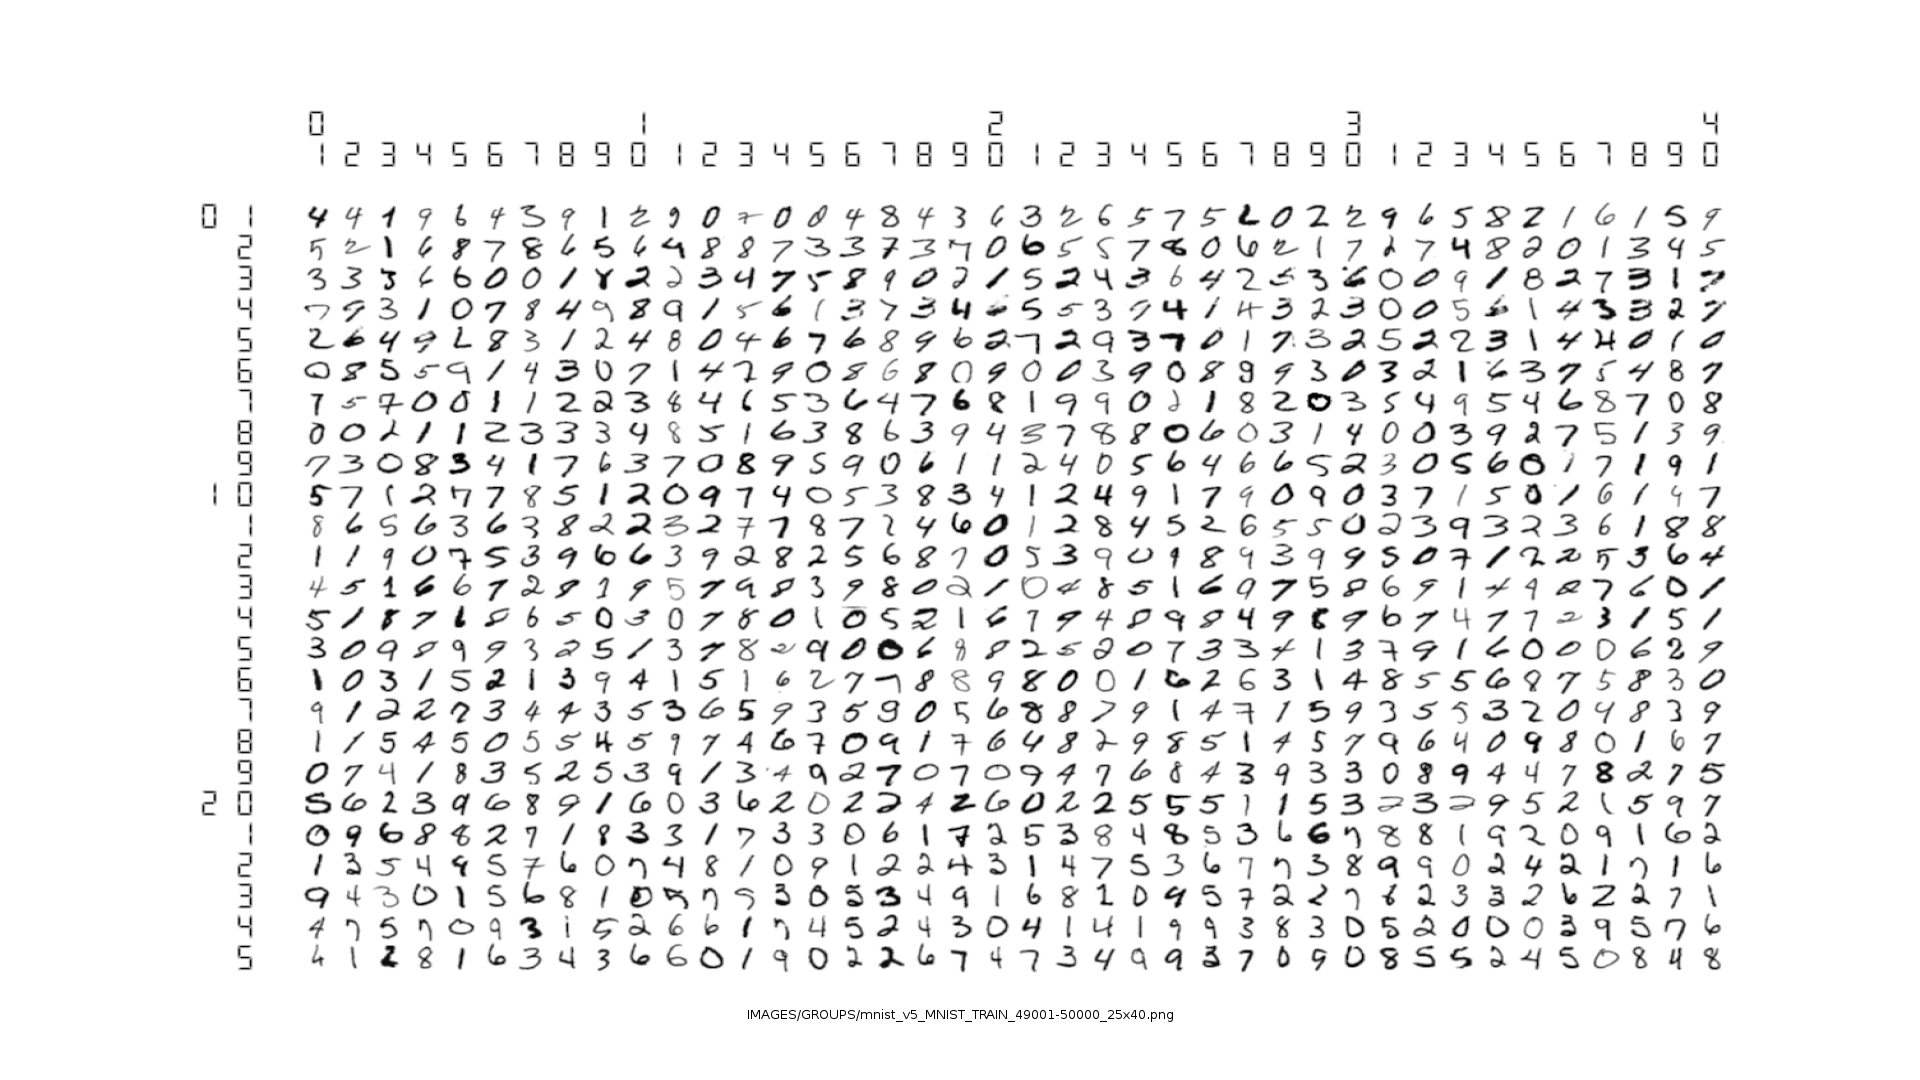 0 1 2 3 4
1 2 3 4 5 6 7 8 9 0 1 2 3 4 5 6 7 8 9 0 1 2 3 4 5 6 7 8 9 0 1 2 3 4 5 6 7 8 9 0
0 1 4 4 1 9 6 4 3 9 1 2 9 0 7 0 0 4 8 4 3 6 3 2 6 5 7 5 2 0 2 2 9 6 5 8 2 1 6 1 5 9
2 5 2 1 6 8 7 8 6 5 6 4 8 8 7 3 3 7 3 7 0 6 5 5 7 8 0 6 2 1 7 2 7 4 8 2 0 1 3 4 5
3 3 3 3 6 6 0 0 1 8 2 2 3 4 7 5 8 9 0 2 1 5 2 4 3 6 4 2 5 3 6 0 0 9 1 8 2 7 3 1 7
4 7 9 3 1 0 7 8 4 9 8 9 1 5 6 1 3 7 3 4 6 5 5 3 9 4 1 4 3 2 3 0 0 5 6 1 4 3 3 2 7
5 2 6 4 9 2 8 3 1 2 4 8 0 4 6 7 6 8 9 6 2 7 2 9 3 7 0 1 7 3 2 5 2 2 3 1 4 4 0 1 0
6 0 8 5 5 9 1 4 3 0 7 1 4 7 9 0 8 6 8 0 9 0 0 3 9 0 8 9 9 3 0 3 2 1 6 3 7 5 4 8 7
7 7 5 7 0 0 1 1 2 2 3 8 4 6 5 3 6 4 7 6 8 1 9 9 0 2 1 8 2 0 3 5 4 9 5 4 6 8 7 0 8
8 0 0 2 1 1 2 3 3 3 4 8 5 1 6 3 8 6 3 9 4 3 7 8 8 0 6 0 3 1 4 0 0 3 9 2 7 5 1 3 9
9 7 3 0 8 3 4 1 7 6 3 7 0 8 9 5 9 0 6 1 1 2 4 0 5 6 4 6 6 5 2 3 0 5 6 0 1 7 1 9 1
1 0 5 7 1 2 7 7 8 5 1 2 0 9 7 4 0 5 3 8 3 4 1 2 4 9 1 7 9 0 9 0 3 7 1 5 0 1 6 1 4 7
1 8 6 5 6 3 6 3 8 2 2 3 2 7 7 8 7 2 4 6 0 1 2 8 4 5 2 6 5 5 0 2 3 9 3 2 3 6 1 8 8
2 1 1 9 0 7 5 3 9 6 6 3 9 2 8 2 5 6 8 7 0 5 3 9 0 1 8 9 3 9 9 5 0 7 1 2 2 5 3 6 4
3 4 5 1 6 6 7 2 8 1 9 5 7 9 8 3 9 8 0 2 1 0 4 8 5 1 6 9 7 5 8 6 9 1 4 9 8 7 6 0 1
4 5 1 8 7 6 8 6 5 0 3 0 7 8 0 1 0 5 2 1 6 7 9 4 8 9 8 4 9 8 9 6 7 4 7 7 2 3 1 5 1
5 3 0 9 8 9 9 3 2 5 1 3 7 8 2 9 0 0 6 8 8 2 5 2 0 7 3 3 4 1 3 7 9 1 6 0 0 0 6 2 9
6 1 0 3 1 5 2 1 3 9 4 1 5 1 6 2 7 7 8 8 9 8 0 0 1 6 2 6 3 1 4 8 5 5 6 8 7 5 8 3 0
7 9 1 2 2 7 3 4 4 3 5 3 6 5 9 3 5 9 0 5 6 8 8 7 9 1 4 7 1 5 9 3 5 5 3 2 0 4 8 3 9
8 1 1 5 4 5 0 5 5 4 5 9 7 4 6 7 0 9 1 7 6 4 8 2 9 8 5 1 4 5 7 9 6 4 0 9 8 0 1 6 7
9 0 7 4 1 8 3 5 2 5 3 9 1 3 4 9 2 7 0 7 0 9 4 7 6 8 4 3 9 3 3 0 8 9 4 4 7 8 2 7 5
2 0 5 6 2 3 9 6 8 9 1 6 0 3 6 2 0 2 2 4 2 6 0 2 2 5 5 5 1 1 5 3 2 3 2 9 5 2 1 5 9 7
1 0 9 6 8 8 2 7 1 8 3 3 1 7 3 3 0 6 1 7 2 5 3 8 4 8 5 3 6 6 7 8 8 1 9 2 0 9 1 6 2
2 1 3 5 4 9 5 7 6 0 7 4 8 1 0 9 1 2 2 4 3 1 4 7 5 3 6 7 7 3 8 9 9 0 2 4 2 1 7 1 6
3 9 4 3 0 1 5 6 8 1 0 5 7 5 3 0 5 3 4 9 1 6 8 1 0 9 5 7 2 2 7 8 2 3 3 2 6 2 2 7 1
4 4 7 5 7 0 9 3 1 5 2 6 6 1 7 4 5 2 4 3 0 4 1 4 1 9 9 3 8 3 0 5 2 0 0 0 3 9 5 7 6
5 6 1 2 8 1 6 3 4 3 6 6 0 1 9 0 2 2 6 7 4 7 3 4 9 9 3 7 0 9 0 8 5 5 2 4 5 0 8 4 8
IMAGES/GROUPS/mnist_v5_MNIST_TRAIN_49001-50000_25x40.png